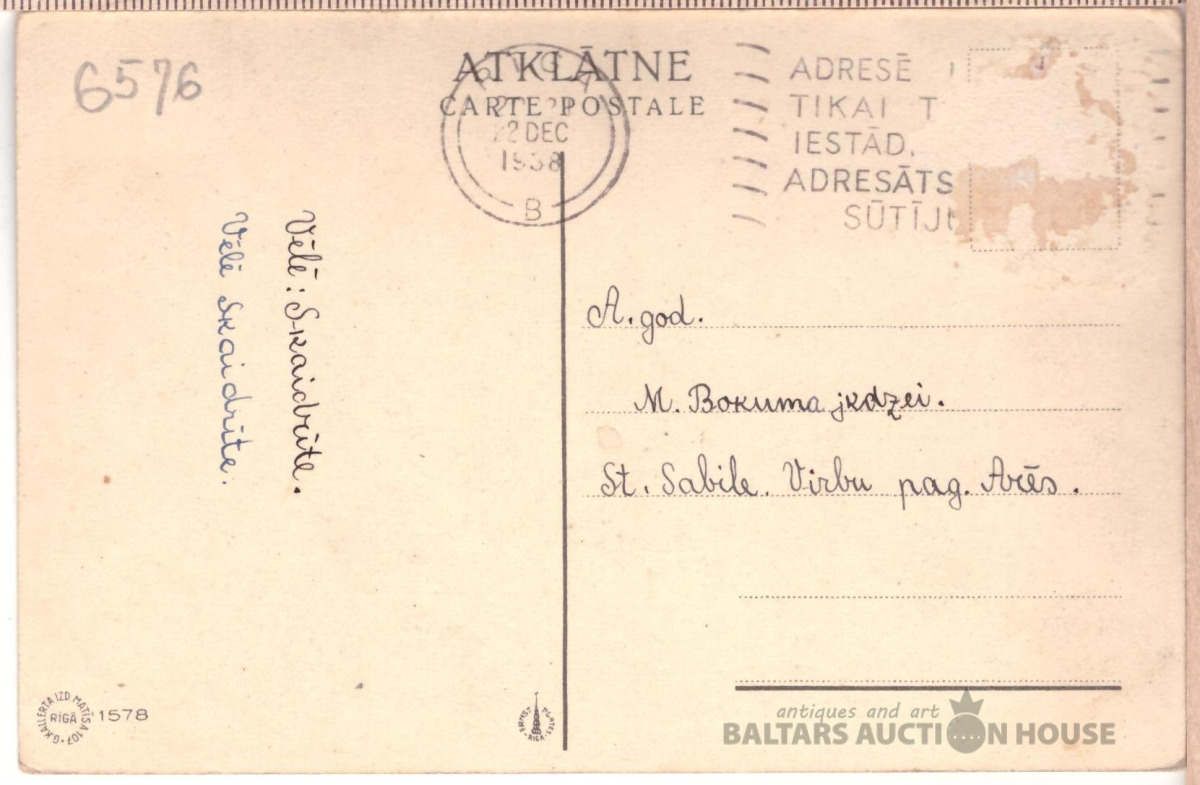 6576
ATKLĀTNE
CARTE POSTALE
RIGA
22 DEC
1938
B
ADRESĒ
TIKAI T
IESTĀD,
ADRESĀTS
SŪTĪJU
Vēlē: Skaidrīte.
Vēlē Skaidrīte.
A. god.
M. Bokuma jkdzei.
St. Sabile. Virbu pag.
G.KALLERTA IZD. MATĪSA 107
RĪGĀ
1578
ERNST PLATES
RIGA
antiques and art
BALTARS AUCTION HOUSE